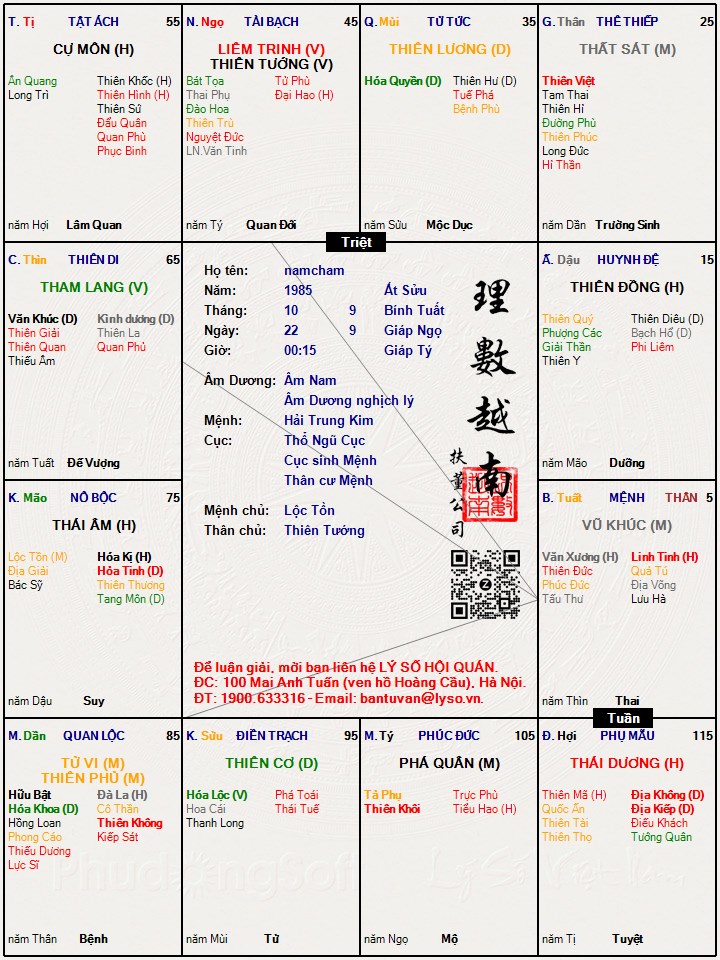 T. Tị TẬT ÁCH 55
CỰ MÔN (H)
Ân Quang Thiên Khốc (H)
Long Trì Thiên Hình (H)
Thiên Sứ
Đẩu Quân
Quan Phù
Phục Binh
năm Hợi Lâm Quan
N. Ngọ TÀI BẠCH 45
LIÊM TRINH (V)
THIÊN TƯỚNG (V)
Bát Tọa Tử Phù
Thai Phụ Đại Hao (H)
Đào Hoa
Thiên Trù
Nguyệt Đức
LN.Văn Tinh
năm Tý Quan Đới
Q. Mùi TỬ TỨC 35
THIÊN LƯƠNG (D)
Hóa Quyền (D) Thiên Hư (D)
Tuế Phá
Bệnh Phù
năm Sửu Mộc Dục
G. Thân THÊ THIẾP 25
THẤT SÁT (M)
Thiên Việt
Tam Thai
Thiên Hỉ
Đường Phù
Thiên Phúc
Long Đức
Hỉ Thần
năm Dần Trường Sinh
Triệt
C. Thìn THIÊN DI 65
THAM LANG (V)
Văn Khúc (D) Kình dương (D)
Thiên Giải Thiên La
Thiên Quan Quan Phủ
Thiếu Âm
năm Tuất Đế Vượng
Họ tên: namcham
Năm: 1985 Ất Sửu
Tháng: 10 9 Bính Tuất
Ngày: 22 9 Giáp Ngọ
Giờ: 00:15 Giáp Tý
Âm Dương: Âm Nam
Âm Dương nghịch lý
Mệnh: Hải Trung Kim
Cục: Thổ Ngũ Cục
Cục sinh Mệnh
Thân cư Mệnh
Mệnh chủ: Lộc Tồn
Thân chủ: Thiên Tướng
理數越南
扶董公司
Để luận giải, mời bạn liên hệ LÝ SỐ HỘI QUÁN.
ĐC: 100 Mai Anh Tuấn (ven hồ Hoàng Cầu), Hà Nội.
ĐT: 1900.633316 - Email: bantuvan@lyso.vn.
Ấ. Dậu HUYNH ĐỆ 15
THIÊN ĐỒNG (H)
Thiên Quý Thiên Diêu (D)
Phượng Các Bạch Hổ (D)
Giải Thần Phi Liêm
Thiên Y
năm Mão Dưỡng
K. Mão NÔ BỘC 75
THÁI ÂM (H)
Lộc Tồn (M) Hóa Kị (H)
Địa Giải Hỏa Tinh (D)
Bác Sỹ Thiên Thương
Tang Môn (D)
năm Dậu Suy
B. Tuất MỆNH THÂN 5
VŨ KHÚC (M)
Văn Xương (H) Linh Tinh (H)
Thiên Đức Quả Tú
Phúc Đức Địa Võng
Tấu Thư Lưu Hà
năm Thìn Thai
Tuần
M. Dần QUAN LỘC 85
TỬ VI (M)
THIÊN PHỦ (M)
Hữu Bật Đà La (H)
Hóa Khoa (D) Cô Thần
Hồng Loan Thiên Không
Phong Cáo Kiếp Sát
Thiếu Dương
Lực Sĩ
năm Thân Bệnh
K. Sửu ĐIỀN TRẠCH 95
THIÊN CƠ (D)
Hóa Lộc (V) Phá Toái
Hoa Cái Thái Tuế
Thanh Long
năm Mùi Tử
M. Tý PHÚC ĐỨC 105
PHÁ QUÂN (M)
Tả Phụ Trực Phù
Thiên Khôi Tiểu Hao (H)
năm Ngọ Mộ
Đ. Hợi PHỤ MẪU 115
THÁI DƯƠNG (H)
Thiên Mã (H) Địa Không (D)
Quốc Ấn Địa Kiếp (D)
Thiên Tài Điếu Khách
Thiên Thọ Tướng Quân
năm Tị Tuyệt
PhudongSoft
Lý Số Việt Nam